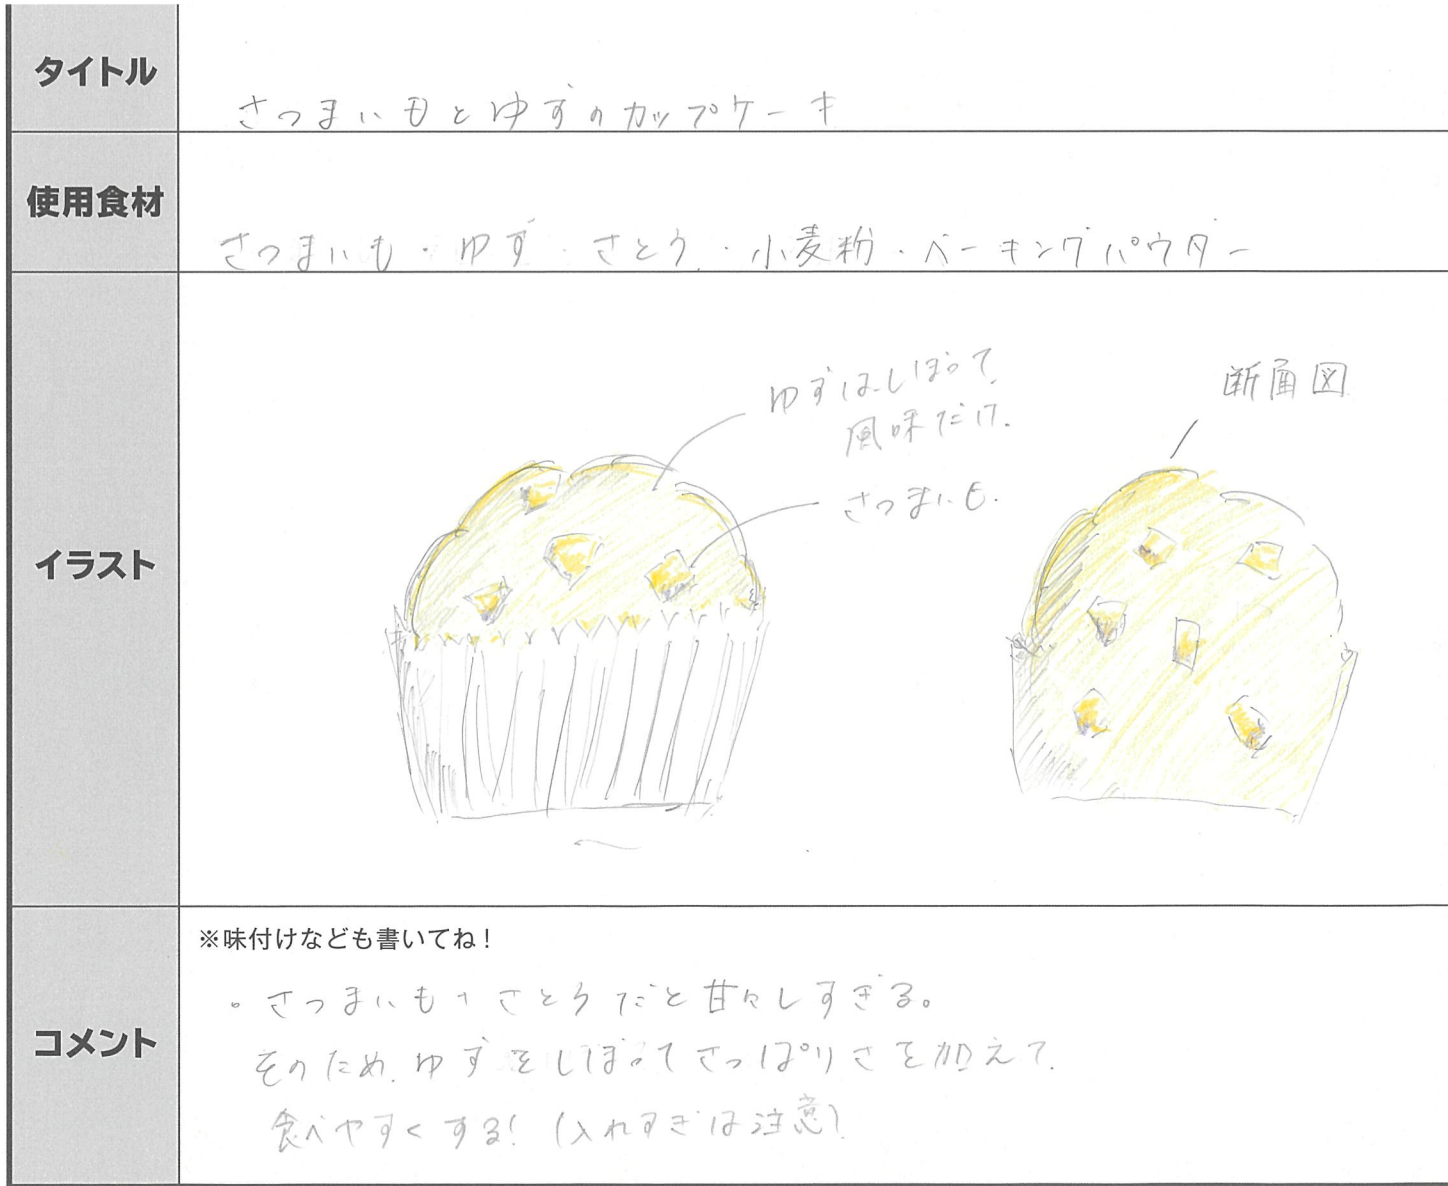 タイトル
さつまいもとゆずのカップケーキ
使用食材
さつまいも・ゆず・さとう・小麦粉・ベーキングパウダー
イラスト
ゆずはしぼって
風味だけ。
さつまいも。
断面図
コメント
※味付けなども書いてね！
。さつまいも+さとうだと甘々しすぎる。
そのため、ゆずをしぼってさっぱりさを加えて、
食べやすくする！(入れすぎは注意)